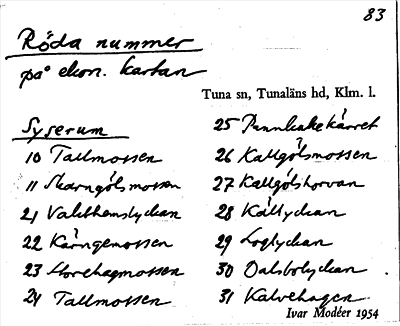 83
Röda nummer
på ekon. kartan
Tuna sn, Tunaläns hd, Klm. l.
Syserum
10 Tallmossen
11 Skarngölsmossen
21 Valsthemslyckan
22 Kärngemossen
23 Storehagmossen
24 Tallmossen
25 Pannkakekärret
26 Kallgölsmossen
27 Kallgölstorvan
28 Kållyckan
29 Loglyckan
30 Dalsbolyckan
31 Kalvehagen
Ivar Modéer 1954